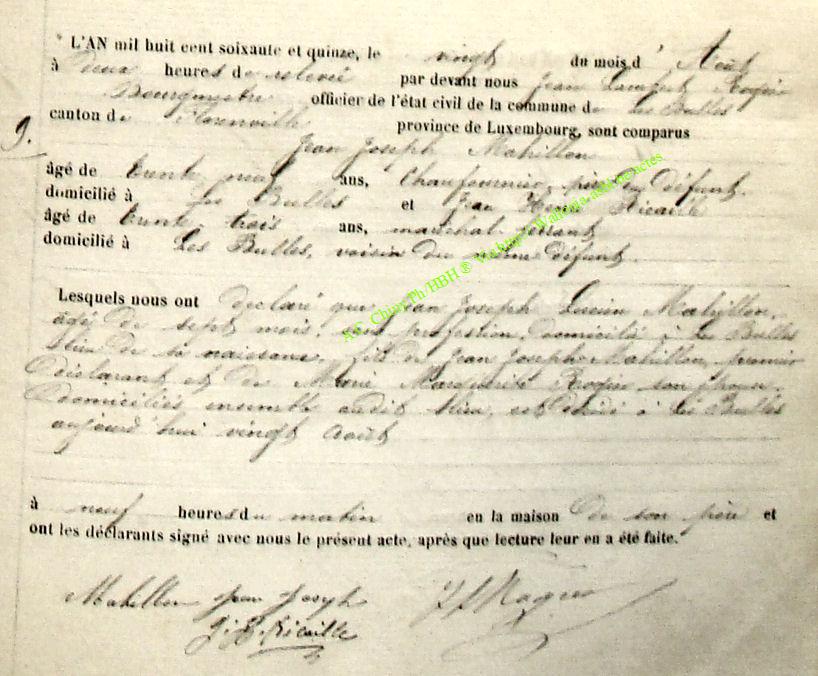 L'AN mil huit cent soixante et quinze, le vingt du mois d' Août
à deux heures de relevée par devant nous Jean Lambert
Bourgmestre officier de l'état civil de la commune de Les Bulles
9. canton de Florenville province de Luxembourg, sont comparus
Jean Joseph Mahillon
âgé de trente neuf ans, Chaufournier, père du défunt.
domicilié à Les Bulles et Jean Henri
âgé de trente trois ans, maréchal ferrant
domicilié à Les Bulles, voisin du même défunt.
Lesquels nous ont déclaré que Jean Joseph Lucien Mahillon,
âgé de sept mois, sans profession, domicilié à Les Bulles
lieu de sa naissance, fils de Jean Joseph Mahillon, premier
déclarant et de Marie Marguerite son épouse.
domiciliés ensemble audit lieu, est décédé à Les Bulles
aujourd'hui vingt août
à neuf heures du matin en la maison de son père et
ont les déclarants signé avec nous le présent acte, après que lecture leur en a été faite.
Mahillon Jean Joseph